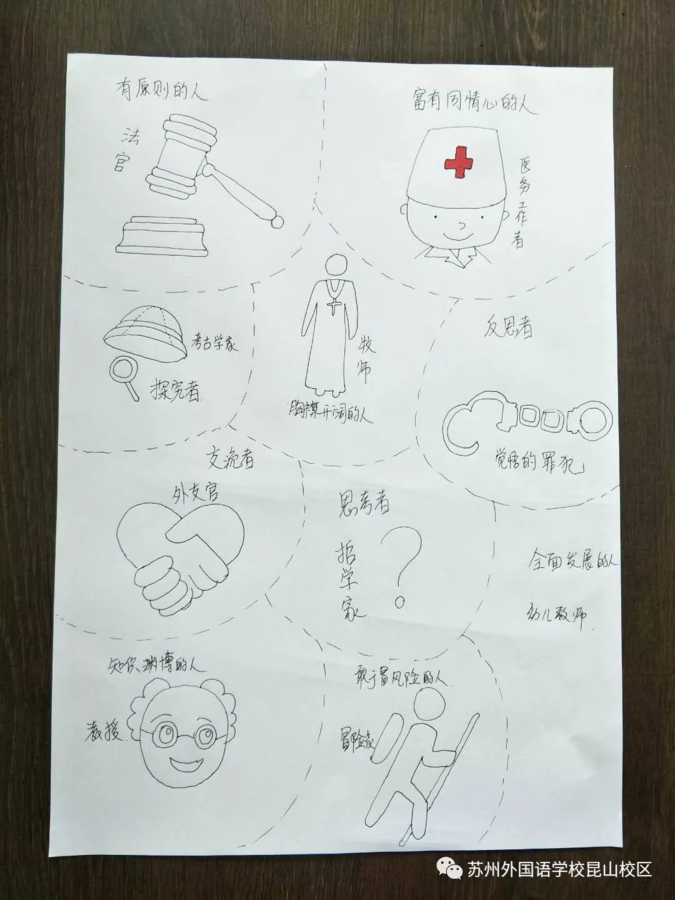 有原则的人
法官
富有同情心的人
医务工作者
考古学家
探究者
牧师
胸襟开阔的人
反思者
觉悟的罪犯
交流者
外交官
思考者
哲学家
全面发展的人
幼儿教师
知识渊博的人
教授
敢于冒风险的人
冒险家
苏州外国语学校昆山校区